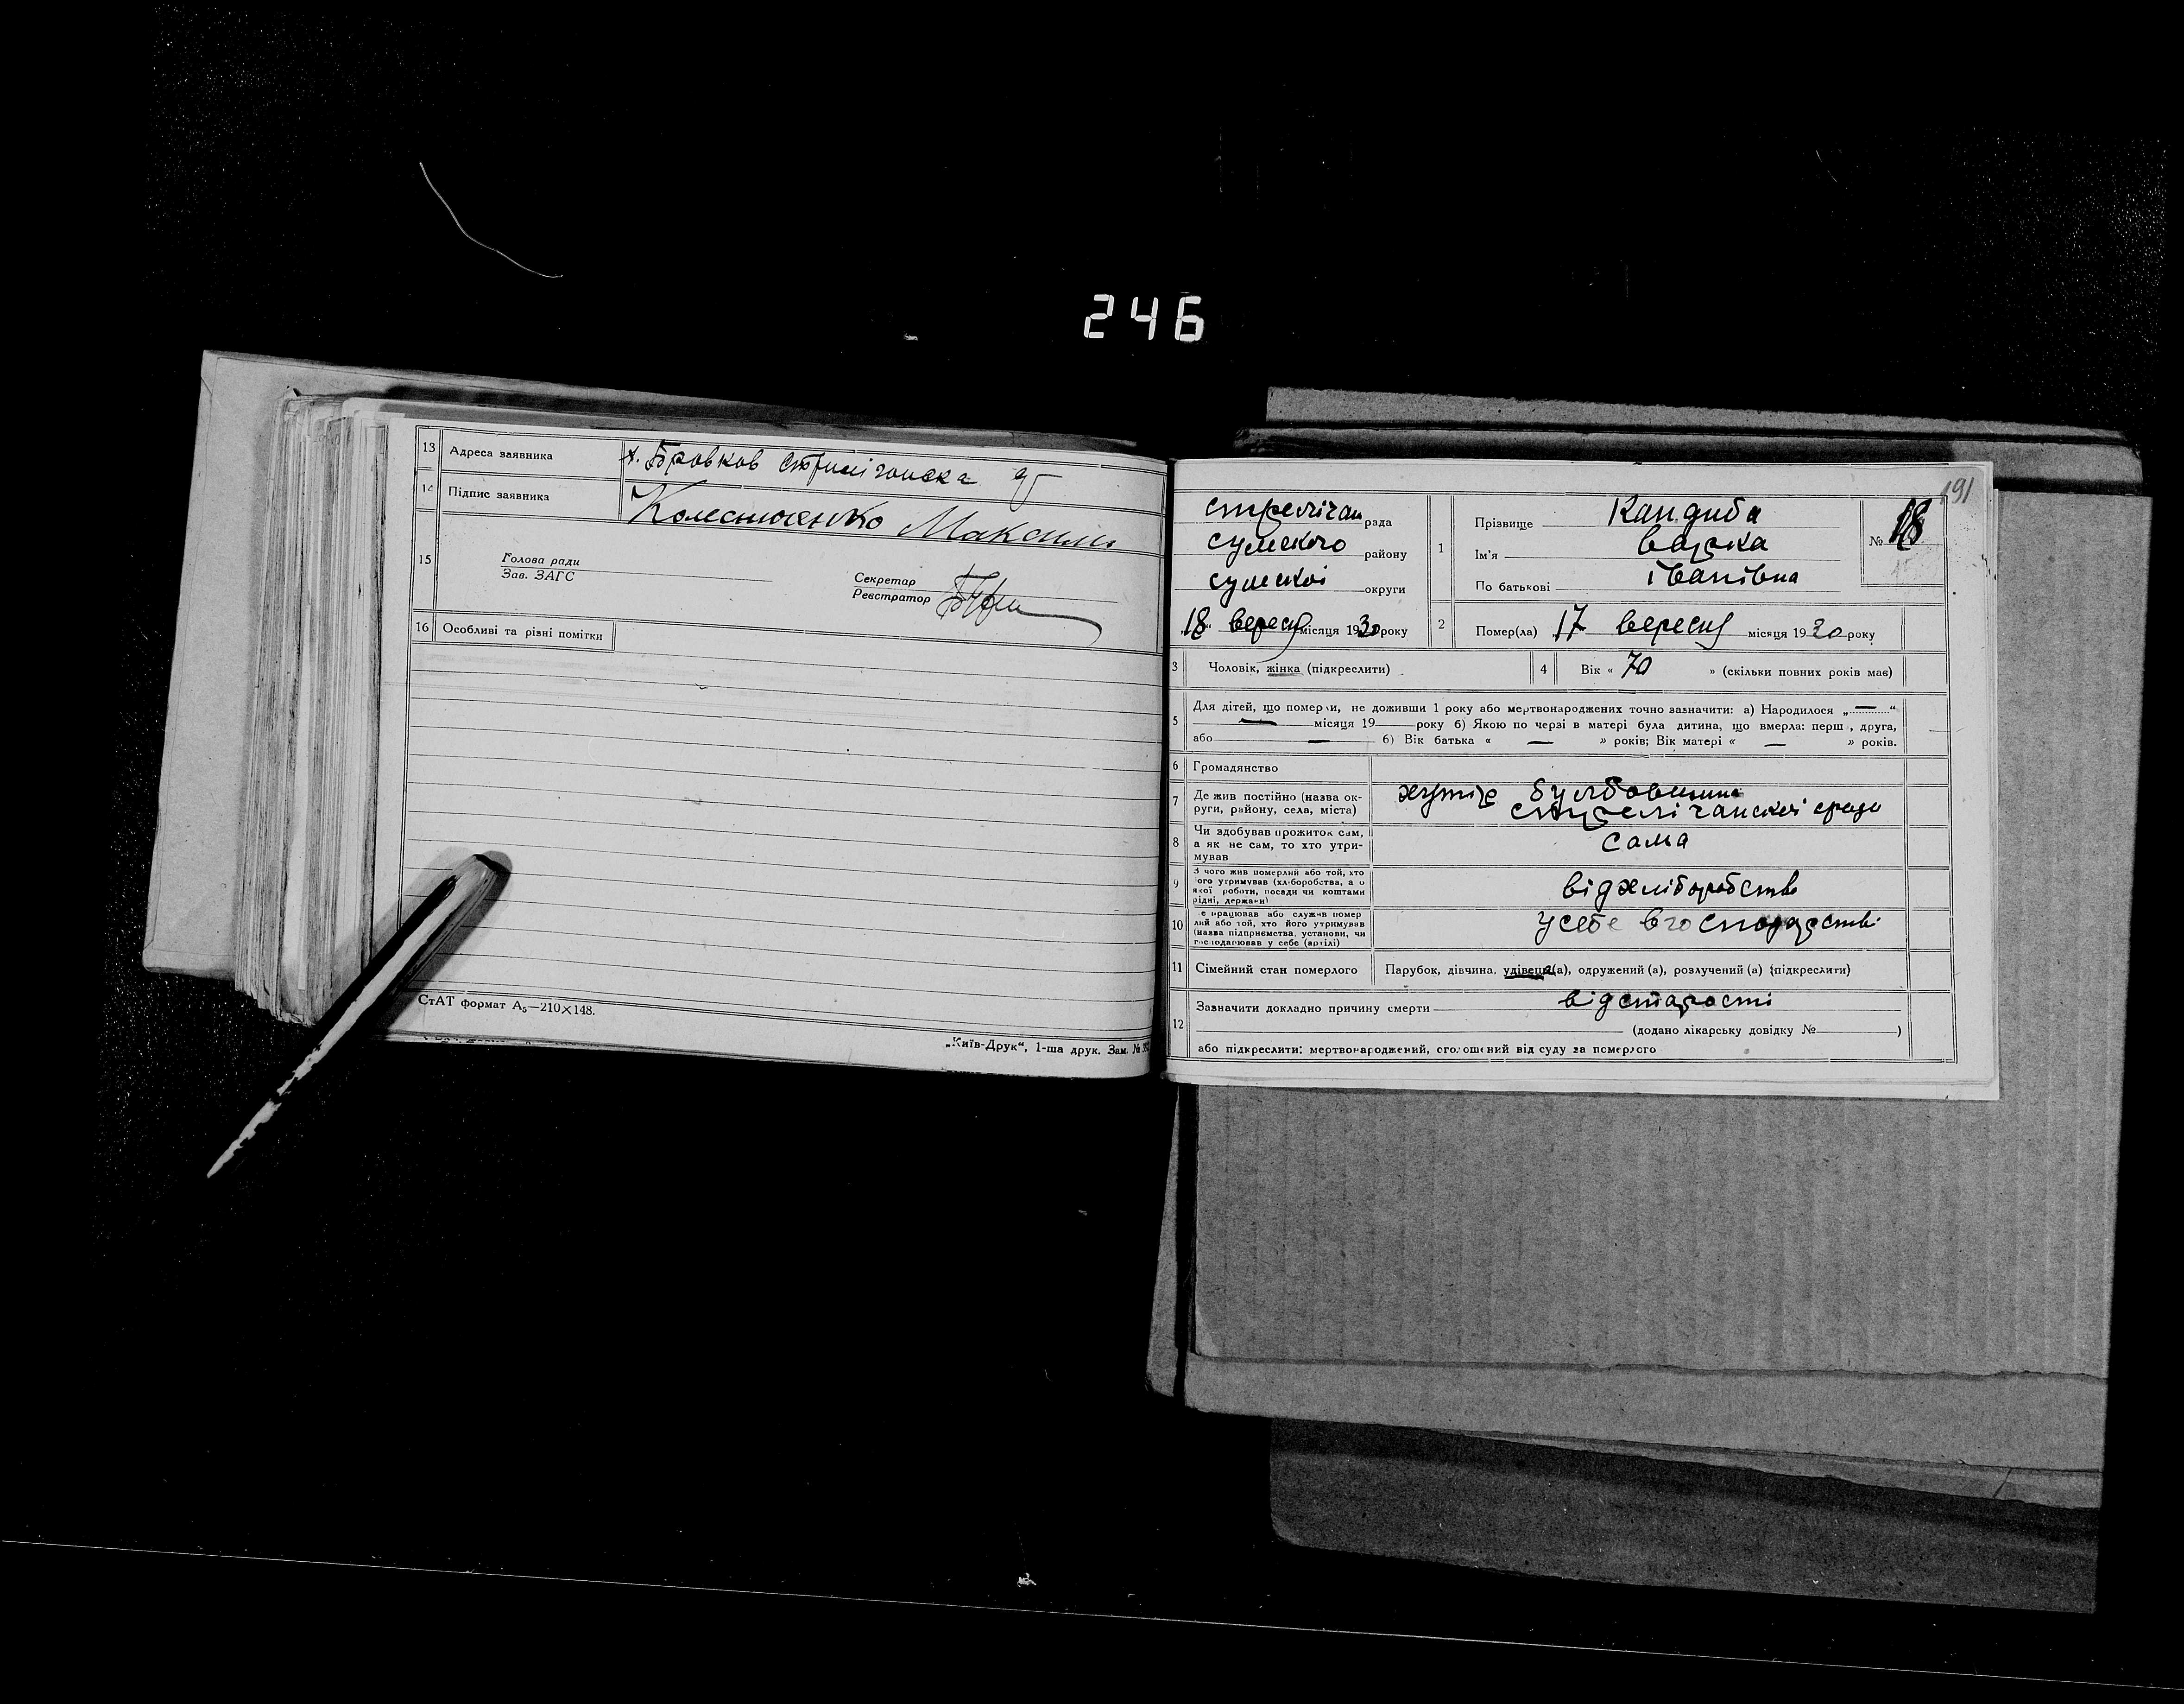 246
13 Адреса заявника х. Бровков
14 Підпис заявника Колесниченко Максим
15 Голова ради
Зав. ЗАГС
Секретар
Реєстратор
16 Особливі та різні помітки
СтАТ формат А5—210×148.
„Київ-Друк“, 1-ша друк. Зам. №
191
стрелічан рада
сумского району
сумскої округи
18 “ вересн місяця 1930 року
1 Прізвище Кандиба
Ім'я варка
По батькові івановна
№ 18
2 Помер(ла) 17 вересн місяця 1930 року
3 Чоловік, жінка (підкреслити)
4 Вік « 70 » (скільки повних років має)
5 Для дітей, що померли, не доживши 1 року або мертвонароджених точно зазначити: а) Народилося „ — “
— місяця 19 — року б) Якою по черзі в матері була дитина, що вмерла: перша, друга,
або — б) Вік батька « — » років; Вік матері « — » років.
6 Громадянство
7 Де жив постійно (назва ок-
руги, району, села, міста)
хутір булбовшина
стрелічанскої сради
8 Чи здобував прожиток сам,
а як не сам, то хто утри-
мував
сама
9 З чого жив померлий або той, хто
його утримував (хліборобства, а о
якої роботи, посади чи коштами
рідні, держави)
від хліборобства
10 е працював або служив помер
лий або той, хто його утримував
(назва підприємства, установи, чи
господарював у себе (артілі)
усебе вгосподарстві
11 Сімейний стан померлого Парубок, дівчина, удівець(а), одружений (а), розлучений (а) (підкреслити)
12 Зазначити докладно причину смерти відстарости
(додано лікарську довідку № )
або підкреслити: мертвонароджений, оголошений від суду за померлого